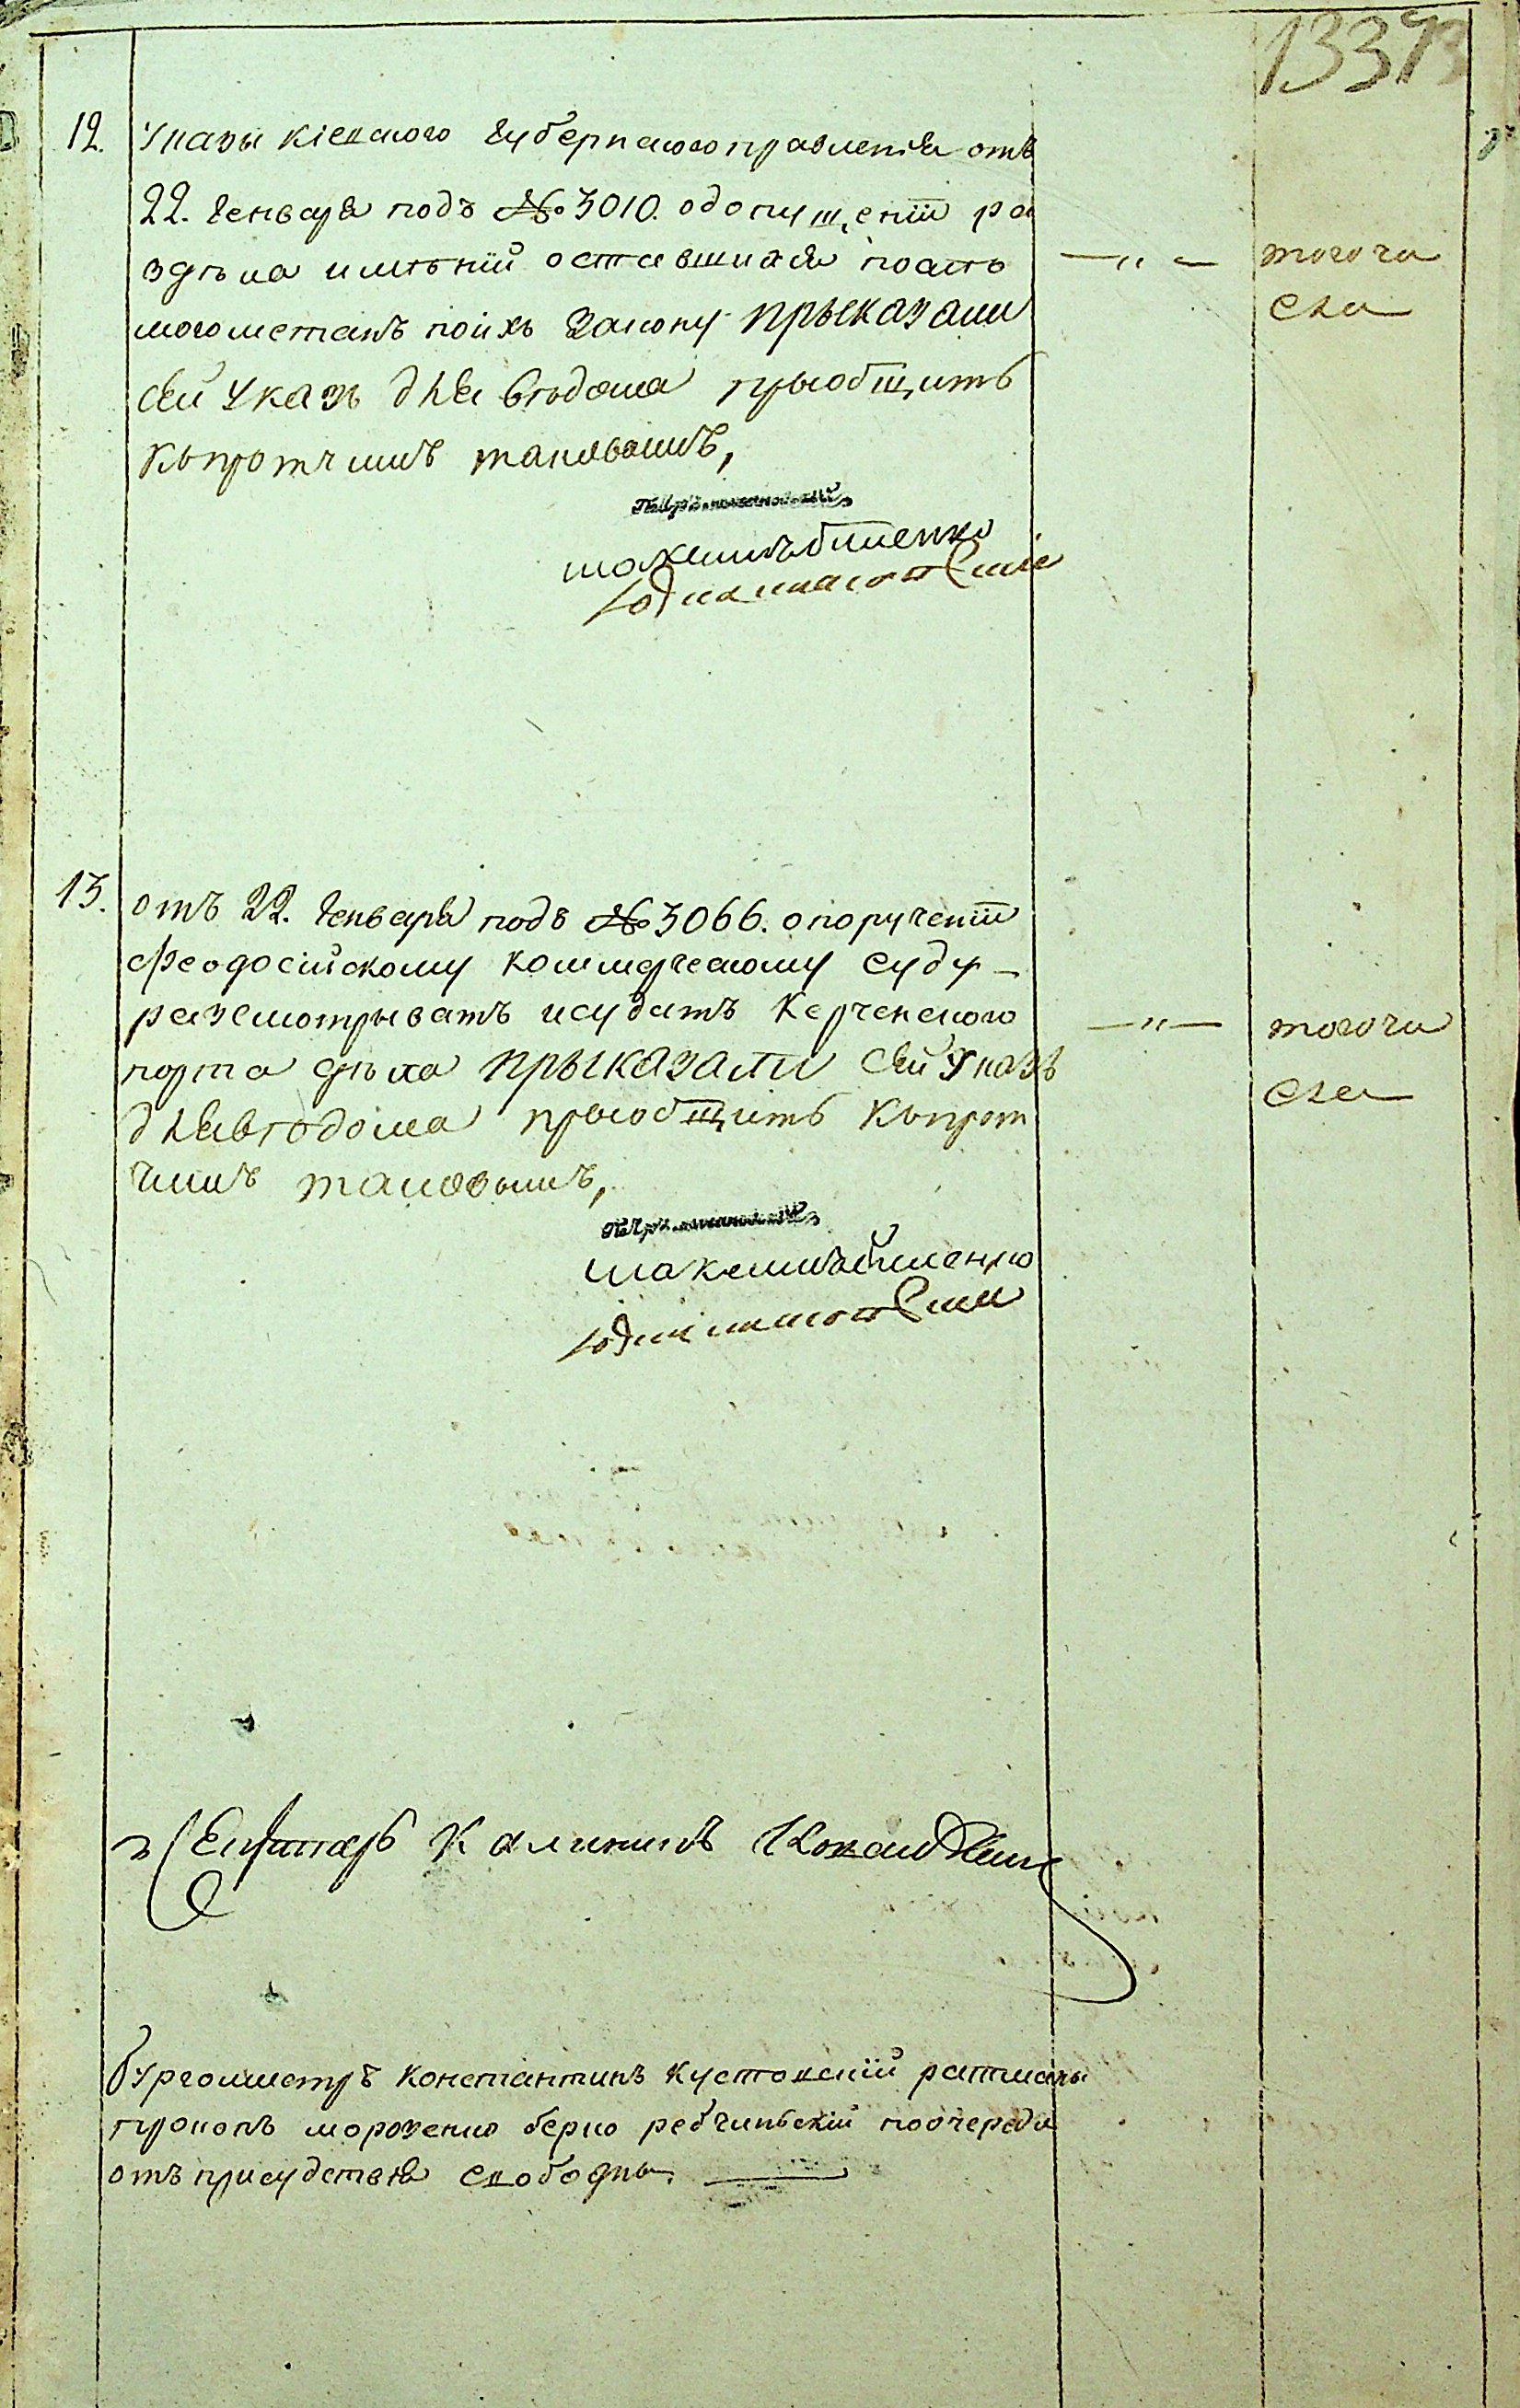 133
12. Указы кіевского губернского правленія отъ
22. Генваря подъ № 3010. одопущеніи ра
здѣла имѣній оставшихся послѣ
могометанъ поихъ закону прыказали
сей указъ для вѣдома пріобщить
къпротчимъ таковымъ,
—„— того чи
сла
13. отъ 22. Генваря подъ № 3066. опорученіи
феодосійскому коммерческому суду
разсмотрывать исудить керченского
порта дѣла прыказали сей указъ
длявѣдома пріобщить къпрот
чимъ таковымъ,
—„— того чи
сла
Секретарь Калиникъ
бургоместръ Константинъ Кустовскій ратманы
прокопъ морозенко берко ребчинскій поочереди
отъ присудствія свободны.